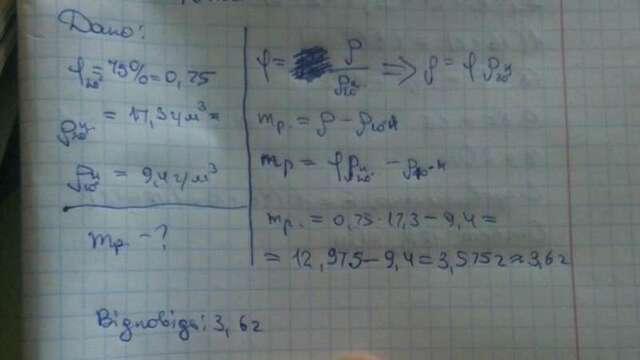 Дано:
φ₂₀ = 75% = 0,75
ρ₂₀ н = 17,3 г/м³
ρ₁₀ н = 9,4 г/м³
mр. - ?
φ = ρ / ρ₂₀ н ⇒ ρ = φ ρ₂₀ н
mр. = ρ - ρ₁₀ н
mр = φρ₂₀ н. - ρ₁₀ н
mр. = 0,75 · 17,3 - 9,4 =
= 12,975 - 9,4 = 3,575 г ≈ 3,6 г
Відповідь: 3,6 г